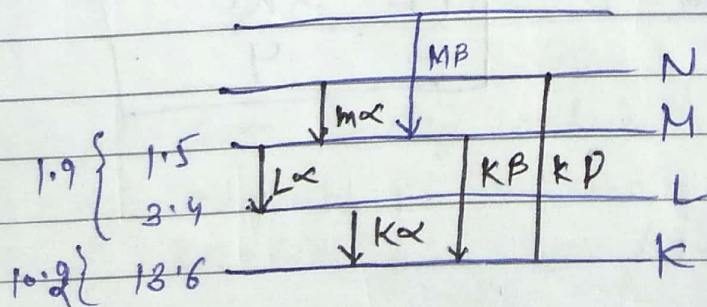 Mβ
N
mα
M
1.9 { 1.5
Lα
Kβ
KD
3.4
L
Kα
10.2 { 13.6
K